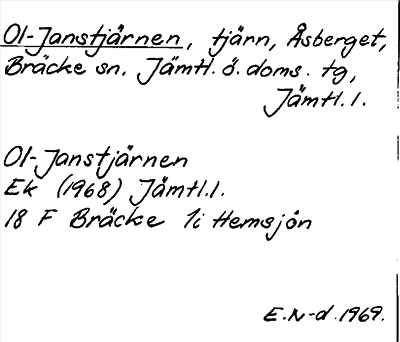 Ol-Janstjärnen, tjärn, Åsberget,
Bräcke sn. Jämtl. ö. doms. tg,
Jämtl. l.
Ol-Janstjärnen
Ek (1968) Jämtl. l.
18 F Bräcke 1i Hemsjön
E.N-d. 1969.